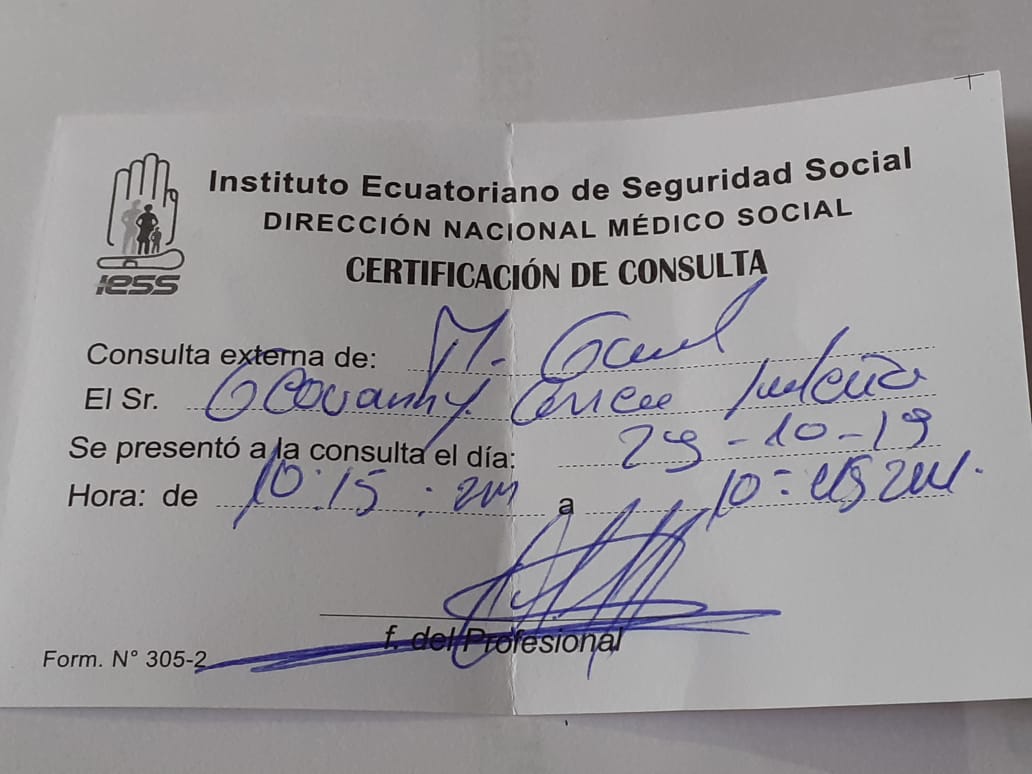 Instituto Ecuatoriano de Seguridad Social
DIRECCIÓN NACIONAL MÉDICO SOCIAL
CERTIFICACIÓN DE CONSULTA
iess
Consulta externa de: M.
El Sr. Geovanny
Se presentó a la consulta el día: 29-10-19
Hora: de 10:15 : am a 10:45 am.
f. del Profesional
Form. N° 305-2